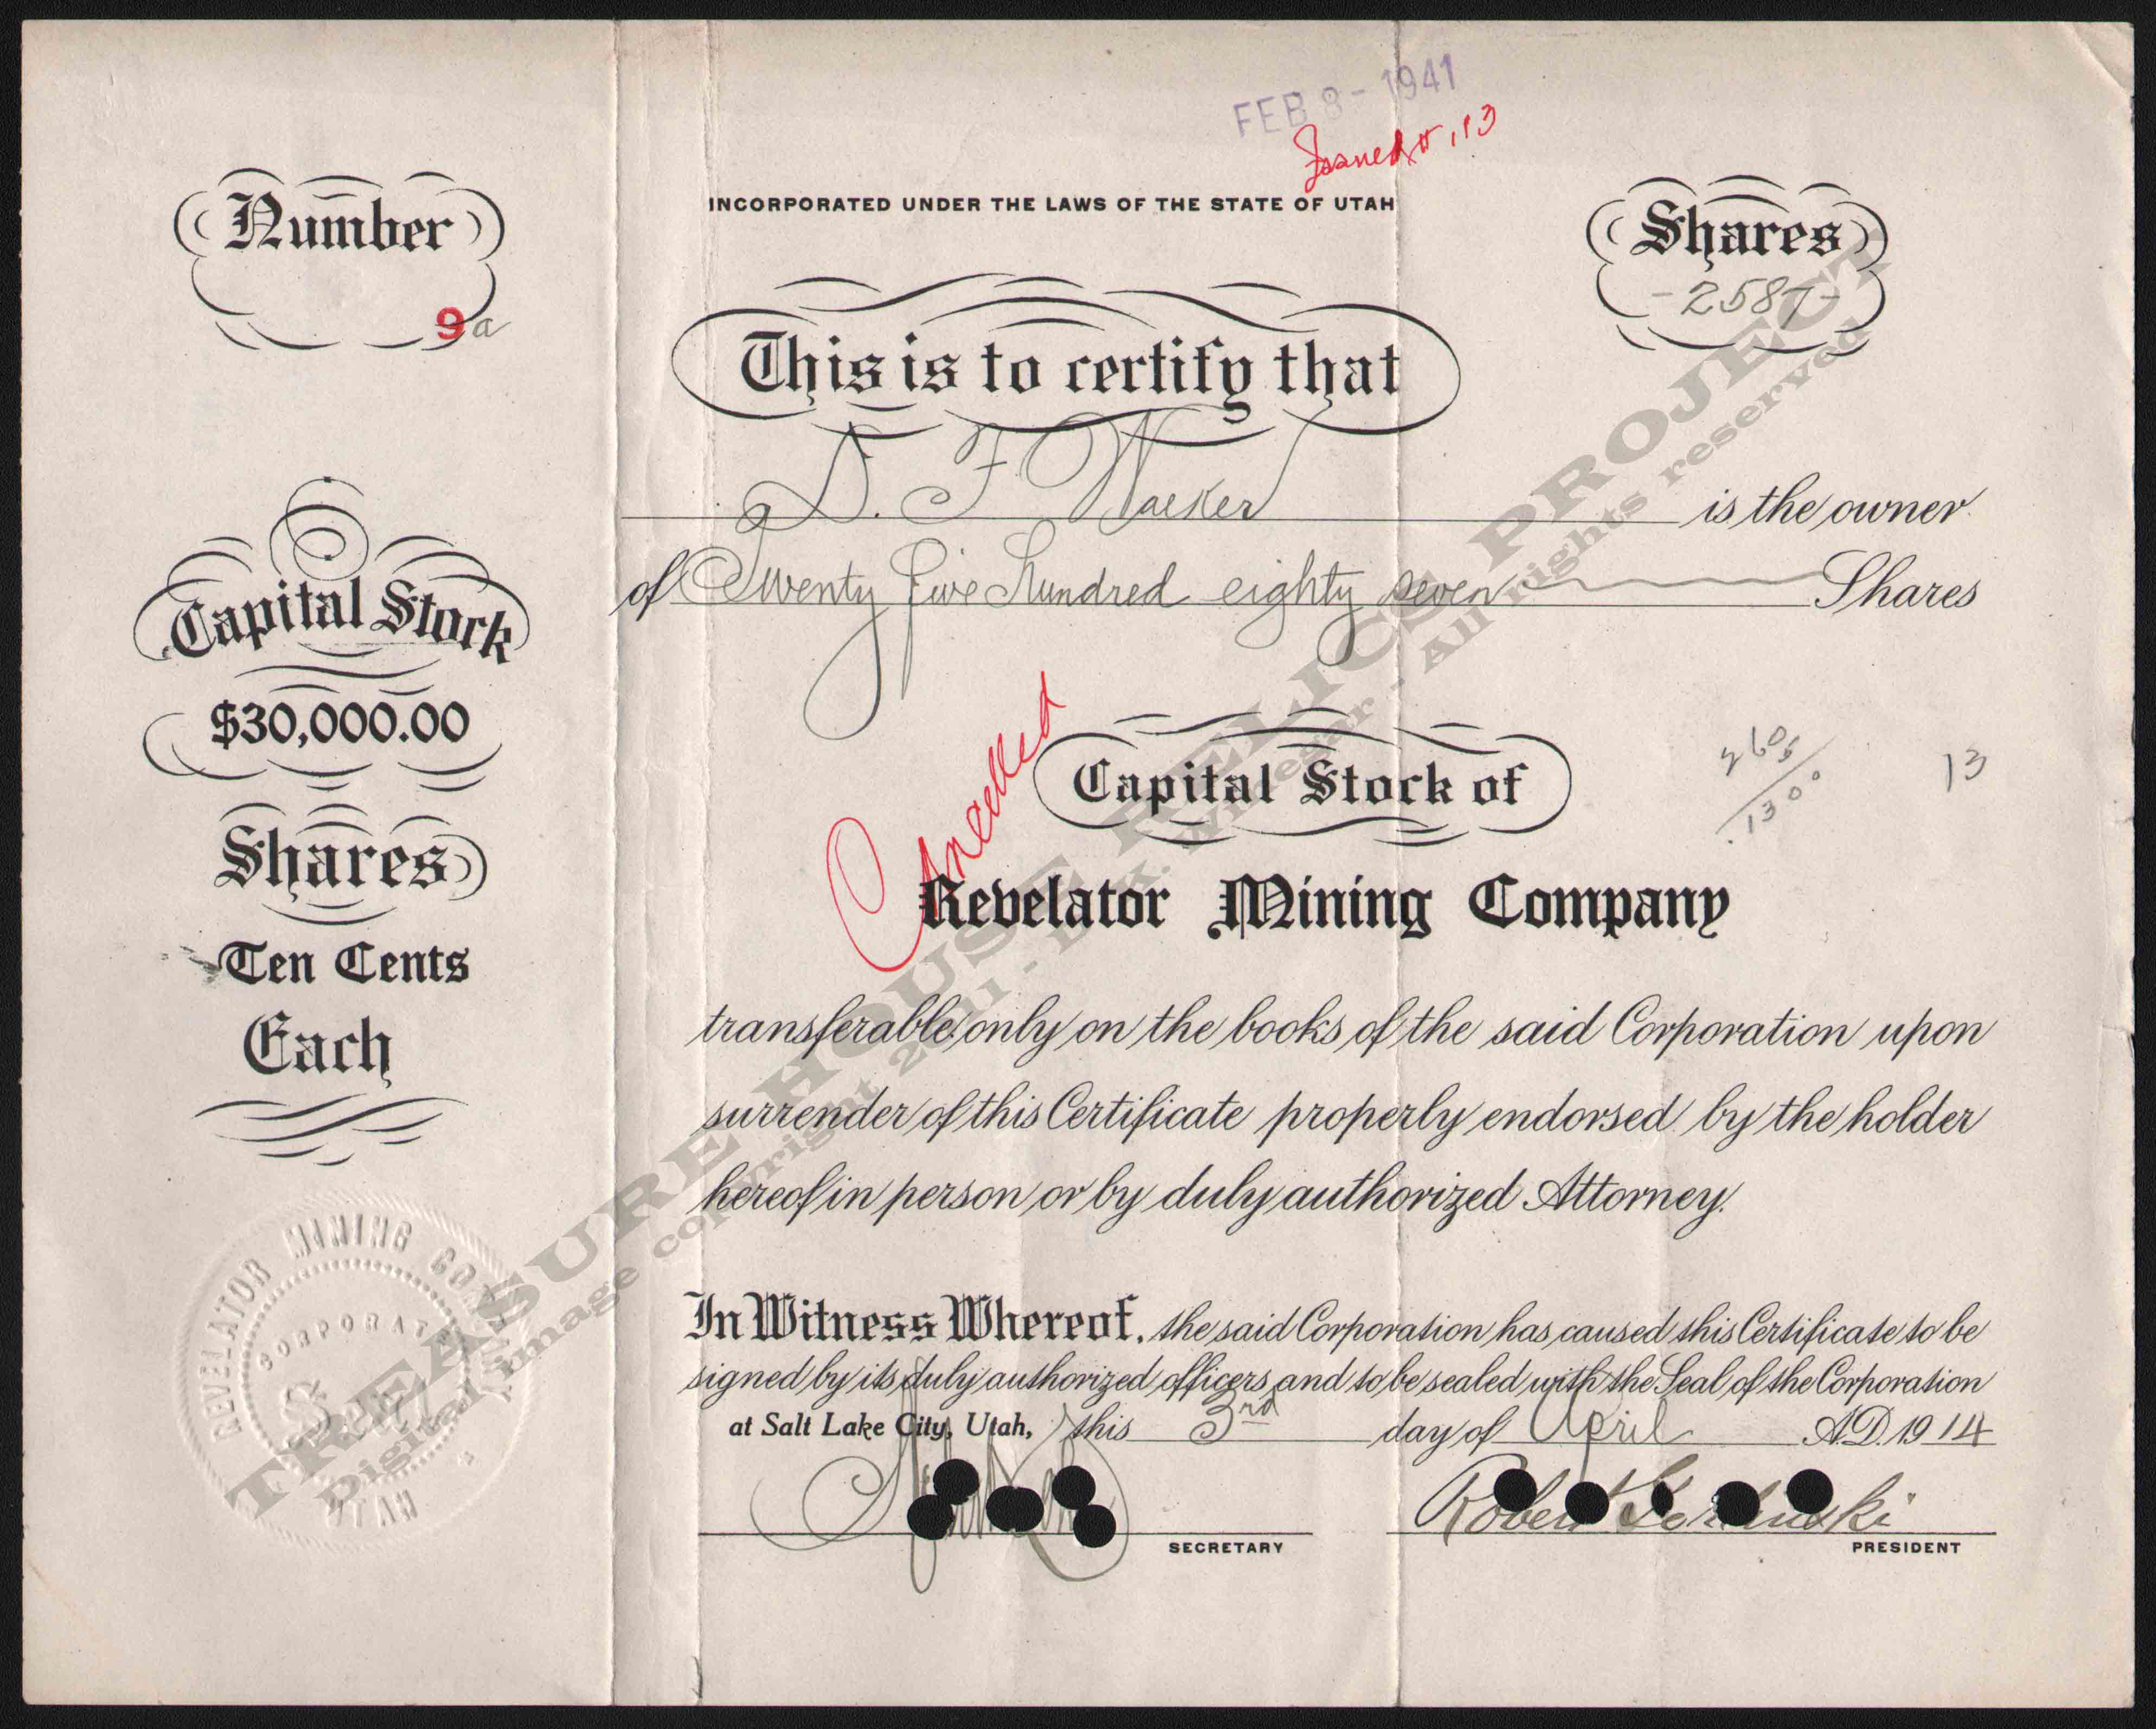 FEB 8 - 1941
INCORPORATED UNDER THE LAWS OF THE STATE OF UTAH
Number
9a
Shares
- 2587 -
This is to certify that
D. F. Walker is the owner
of Twenty five Hundred eighty seven Shares
Capital Stock
$30,000.00
Shares
Ten Cents
Each
Cancelled
Capital Stock of
1300
13
Revelator Mining Company
transferable only on the books of the said Corporation upon
surrender of this Certificate properly endorsed by the holder
hereof in person or by duly authorized Attorney.
In Witness Whereof, the said Corporation has caused this Certificate to be
signed by its duly authorized officers and to be sealed with the Seal of the Corporation
at Salt Lake City, Utah, this 3rd day of April A.D. 1914
Robert
SECRETARY
PRESIDENT
REVELATOR MINING
UTAH
TREASURE HOUSE RELICS PROJECT
Digital image copyright 2011 - All rights reserved